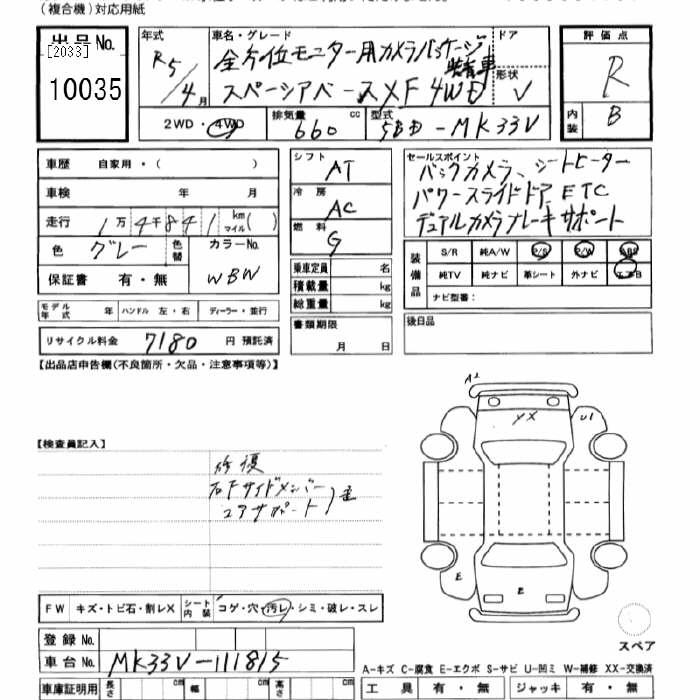 (複合機)対応用紙
出品No.
[2033]
10035
年式
R5/4月
車名・グレード
全方位モニター用カメラパッケージ装着車
スペーシアベース XF 4WD
ドア
形状
V
評価点
R
内装
B
2WD・4WD
排気量
660
cc
型式
5BD-MK33V
車歴 自家用・( )
車検 年 月
走行 1万4千841 km マイル( )
色 グレー
色替
カラーNo.
WBW
保証書 有・無
シフト
AT
冷房
AC
燃料
G
乗車定員 名
積載量 kg
総重量 kg
セールスポイント
バックカメラ、シートヒーター
パワースライドドア ETC
デュアルカメラブレーキサポート
装備品
S/R 純A/W P/S P/W ABS
純TV 純ナビ 革シート 外ナビ エアB
ナビ型番:
モデル年式 年 ハンドル 左・右 ディーラー・並行
リサイクル料金 7180 円 預託済
書類期限
月 日
後日品
【出品店申告欄(不良箇所・欠品・注意事項等)】
【検査員記入】
修復
右Fサイドメンバー
コアサポート
A2
YX
U1
E
E
スペア
FW キズ・トビ石・割レX
シート内装
コゲ・穴・汚レ・シミ・破レ・スレ
登録No.
車台No. MK33V-111815
車庫証明用 長さ cm 幅 cm 高さ cm
A-キズ C-腐食 E-エクボ S-サビ U-凹ミ W-補修 XX-交換済
工具 有・無 ジャッキ 有・無